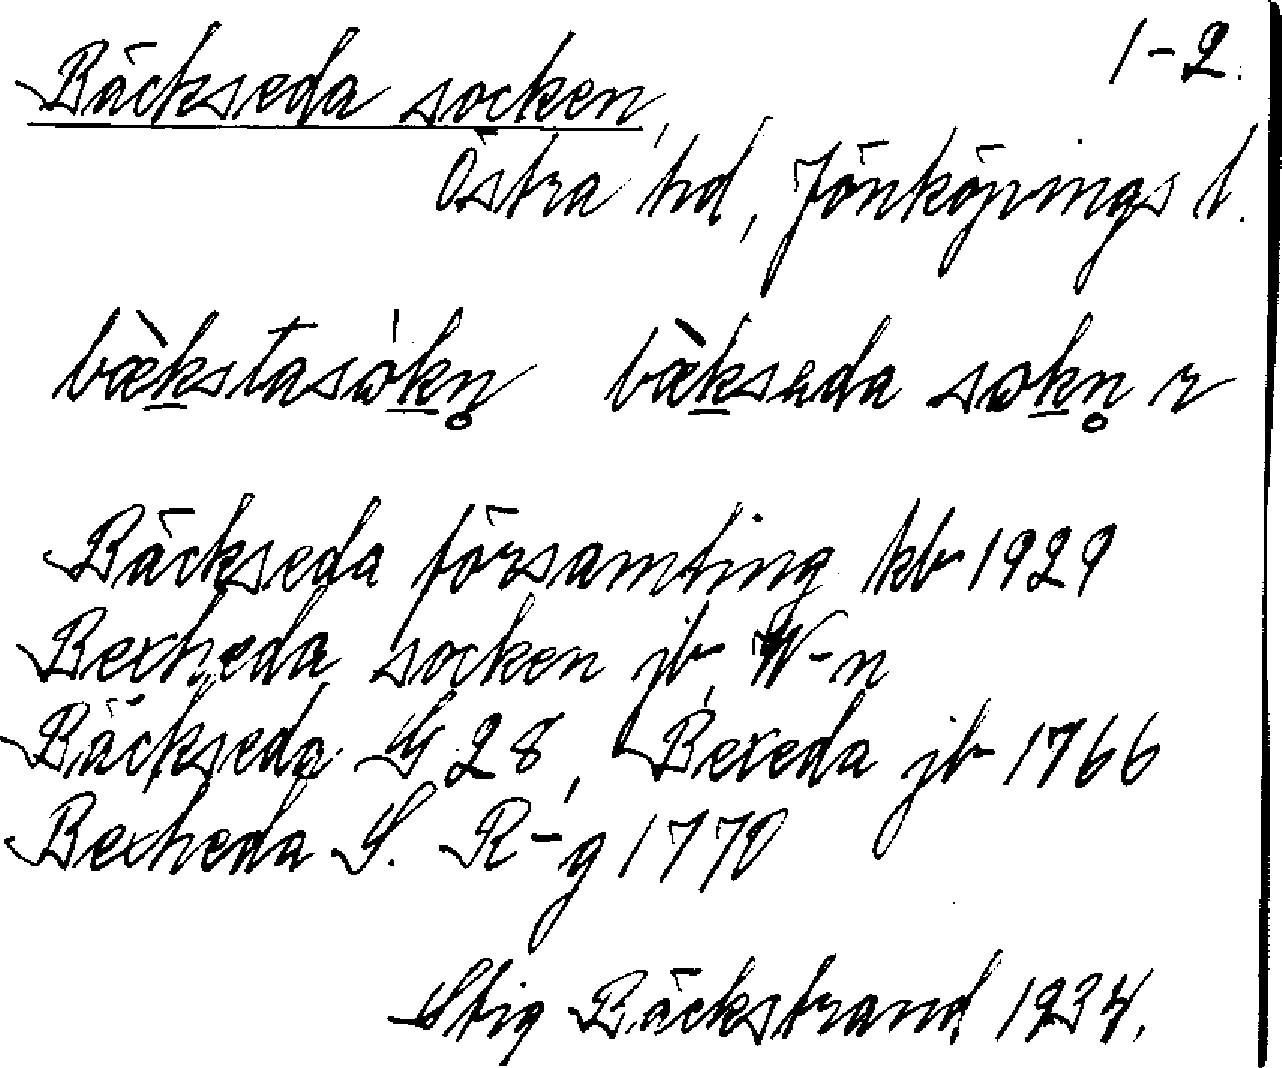 1-2.
Bäckseda socken,
Östra hd, Jönköpings l.
bækstasòkn bækseda søkn r
Bäckseda församling kb 1929
Bexheda socken jb W-n
Bäckseda G 28, Bexeda jb 1766
Bexheda S. R-g 1770
Stig Bäckstrand 1934.